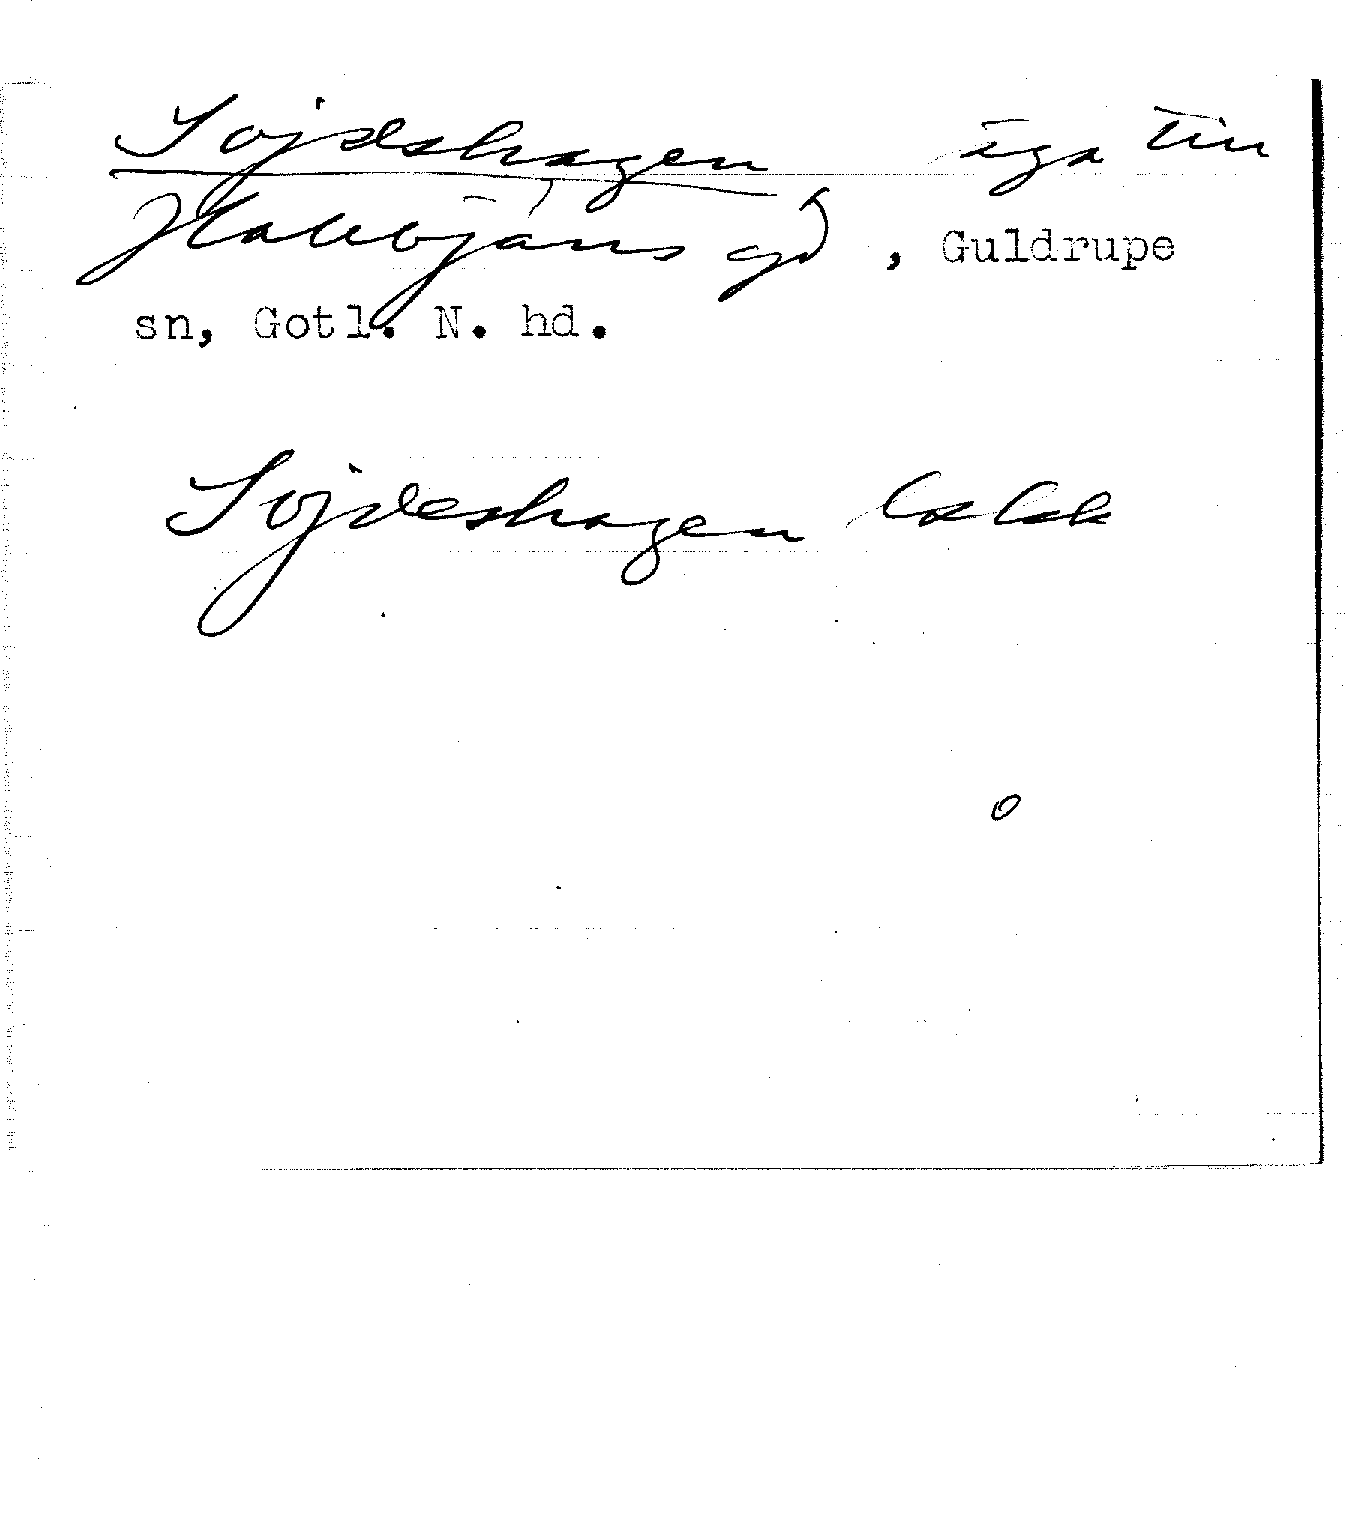 Sojdeshagen äga till
Hallbjäns gd, Guldrupe
sn, Gotl. N. hd.
Sojdeshagen
o